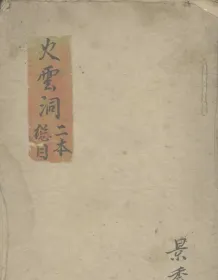 火雲洞
二本
總目
景